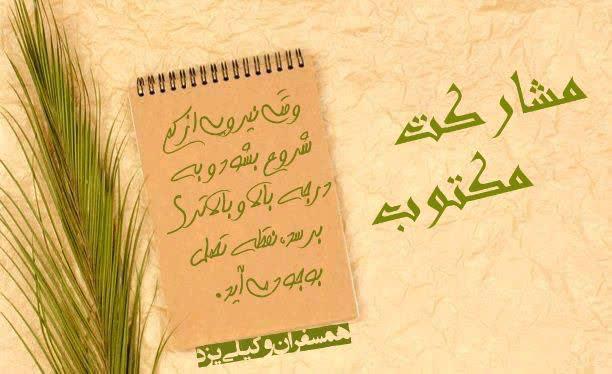 مشارکت
مکتوب
وقتی نیرویی از کم
شروع بشود و به
درجه بالا و بالاتری
برسد، نقطه تحمل
بوجود می آید.
همسفران وکیلی یزد